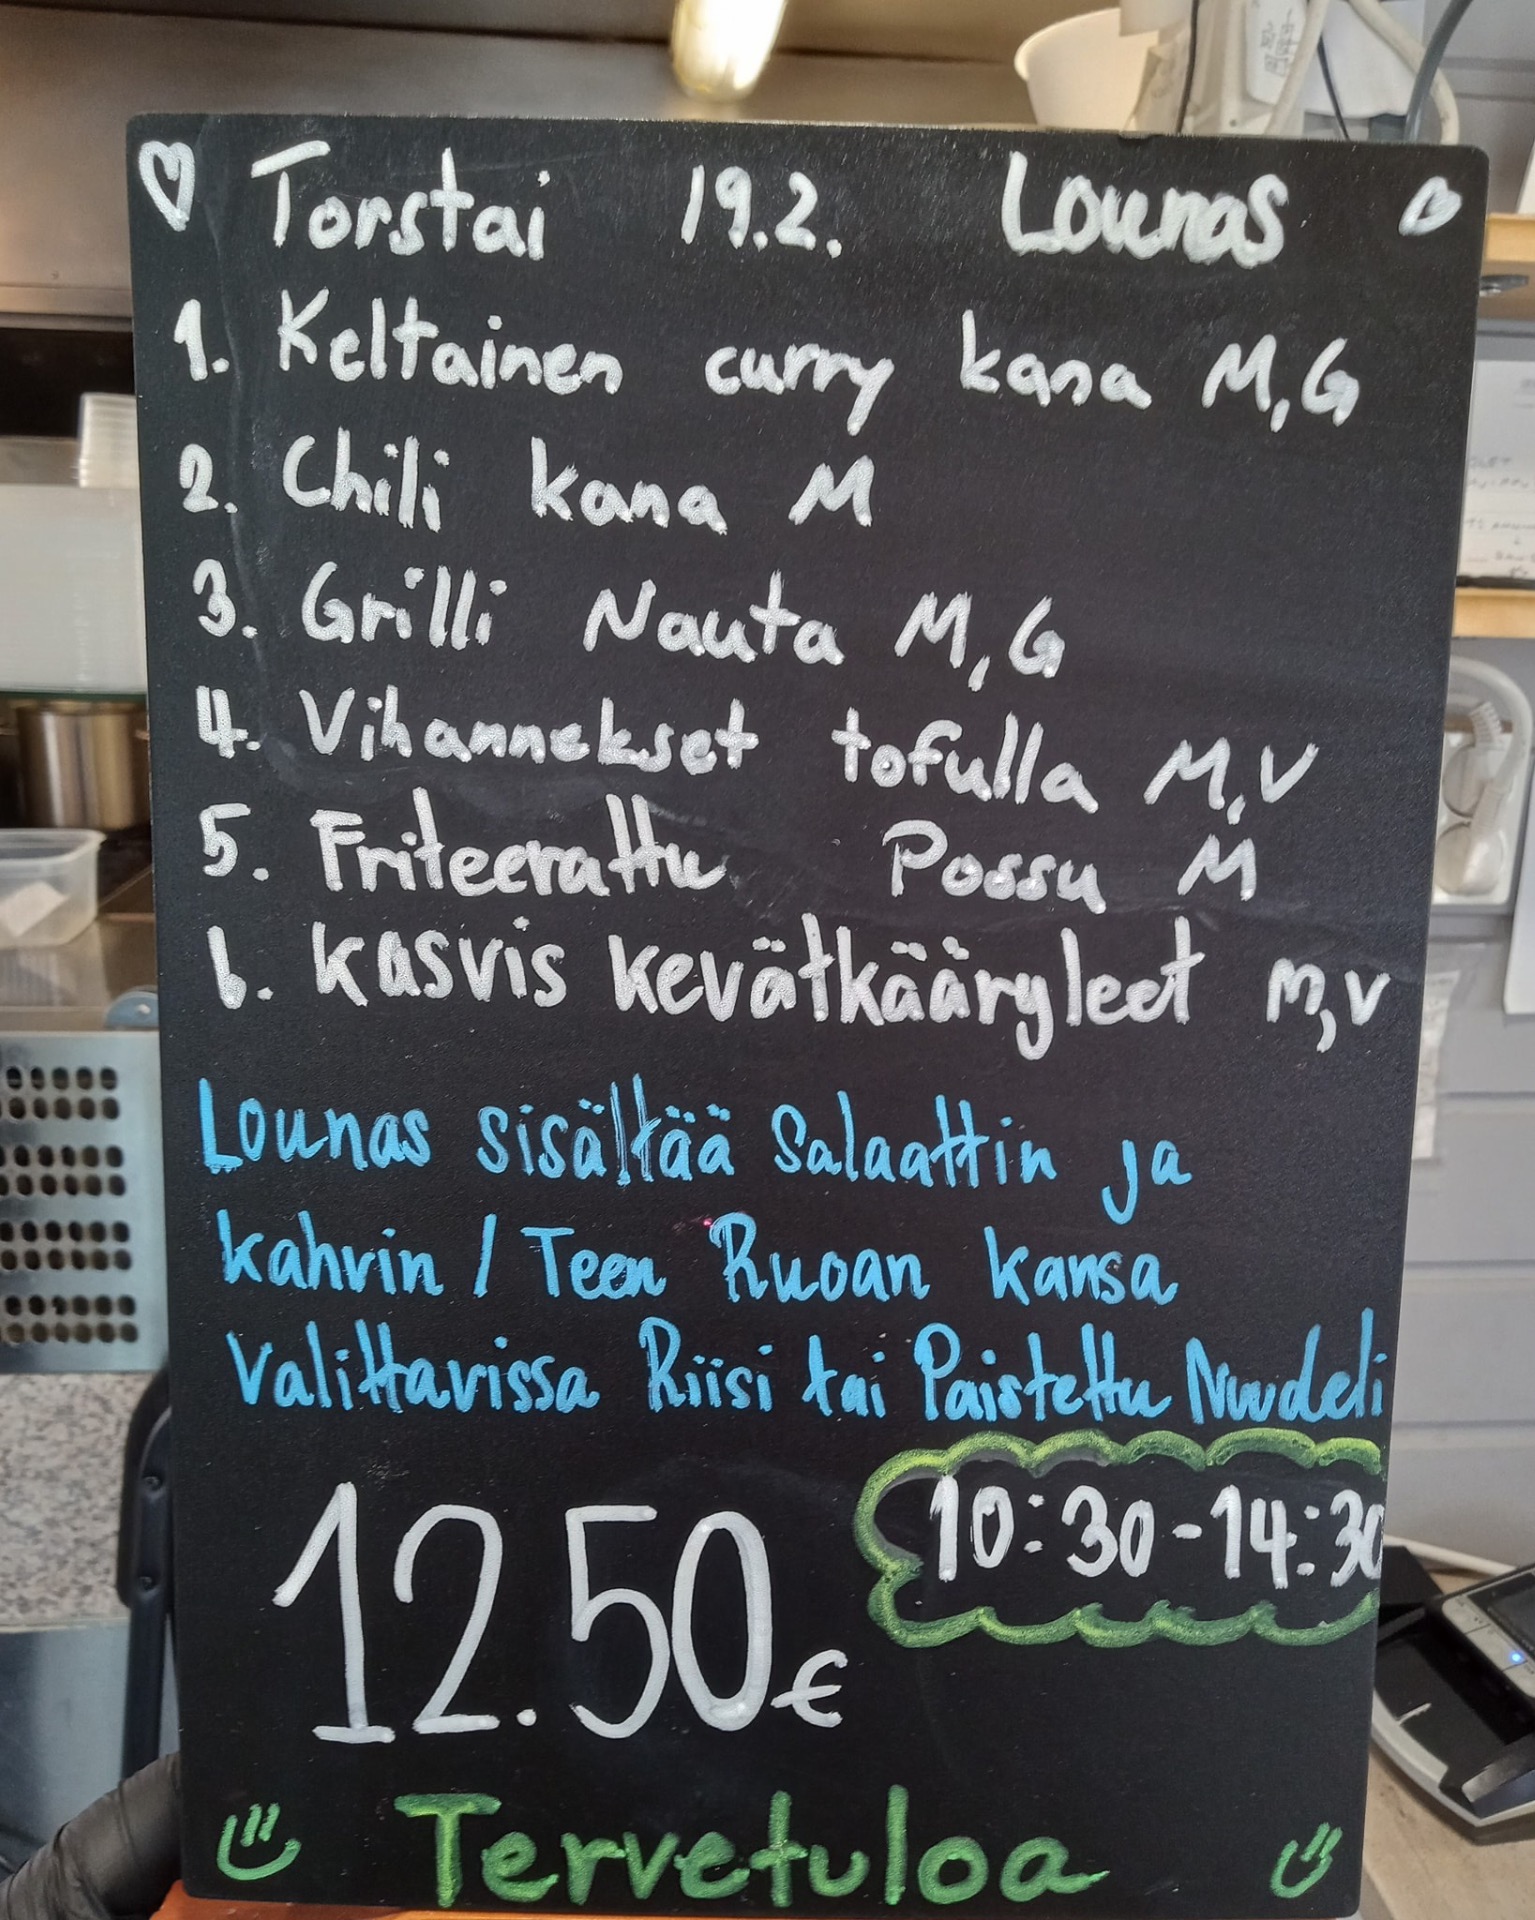 Torstai 19.2. Lounas
1. Keltainen curry kana M,G
2. Chili kana M
3. Grilli Nauta M,G
4. Vihannekset tofulla M,V
5. Friteerattu Possu M
6. Kasvis kevätkääryleet M,V
Lounas sisältää Salaattin ja
kahvin / Teen Ruoan kansa
Valittavissa Riisi tai Paistettu Nuudeli
10:30-14:30
12.50€
Tervetuloa